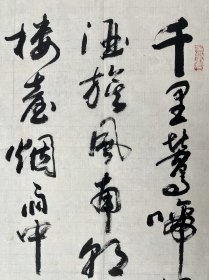 千里莺啼
酒旗风南朝
楼台烟雨中